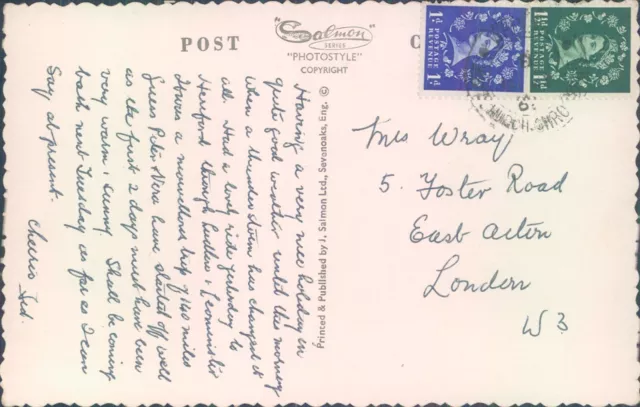 POST
C
"Salmon
SERIES
"PHOTOSTYLE"
COPYRIGHT
Printed & Published by J. Salmon Ltd., Sevenoaks, Eng. ©
Having a very nice holiday in
quite good weather until this morning
when a thunderstorm has changed it
all. Had a lovely ride yesterday to
Hereford through Ludlow & Leominster
It was a marvellous trip of 140 miles
Guess Peter & Vera have started off well
as the first 2 days must have been
very warm & sunny. Shall be coming
back next Tuesday as far as I can
Say at present.
Cheerio
1D POSTAGE REVENUE 1D
1½D POSTAGE REVENUE
Mrs Wray
5. Foster Road
East Acton
London
W3.